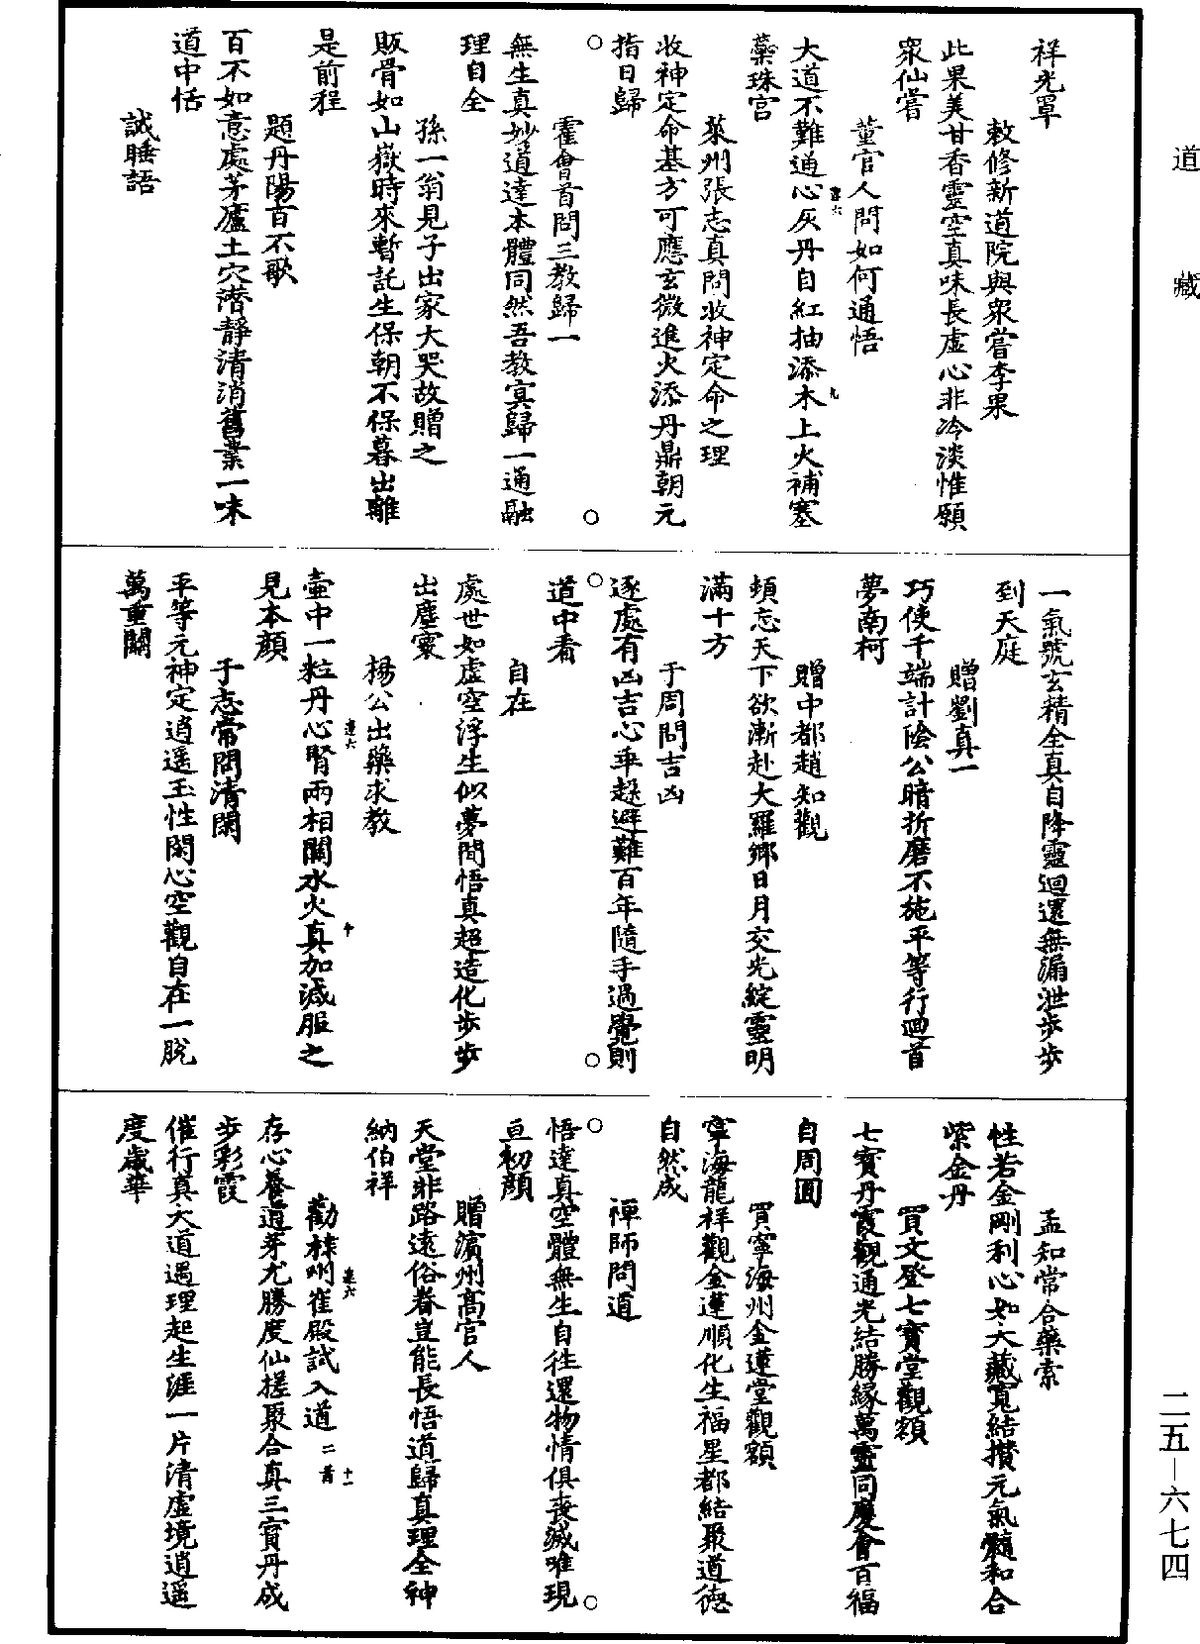 道藏
祥光罩
敕修新道院與眾嘗李果
此果美甘香靈空真味長虛心非冷淡惟願
眾仙嘗
董官人問如何通悟
大道不難通心灰丹自紅抽添木上火補塞
藥珠宮
萊州張志真問收神定命之理
收神定命基方可應玄微進火添丹鼎朝元
指日歸
霍會首問三教歸一
無生真妙道達本體同然吾教寞歸一通融
理自全
孫一翁見子出家大哭故贈之
販骨如山嶽時來暫託生保朝不保暮出離
是前程
題丹陽百不歌
百不如意處茅廬土穴潜靜清消舊業一味
道中恬
誡睡語
一氣號玄精全真自降靈迴還無漏泄步步
到天庭
贈劉真一
巧使千端計陰公暗折磨不施平等行迴首
夢南柯
贈中都趙知觀
頓忘天下欲漸赴大羅鄉日月交光綻靈明
滿十方
于周問吉凶
逐處有凶吉心乖趍避難百年隨手過覺則
道中看
自在
處世如虛空浮生似夢間悟真超造化步步
出塵寰
楊公出藥求教
壺中一粒丹心腎兩相關水火真加減服之
見本顏
于志常問清閑
平等元神定逍遥玉性閑心空觀自在一脫
萬重關
孟知常合藥索
性若金剛利心如大藏寬結攢元氣髓和合
紫金丹
買文登七寶堂觀額
七寶丹霞觀通光結勝緣萬靈同慶會百福
自周圓
買寧海州金蓮堂觀額
寧海龍祥觀金蓮順化生福星都結聚道德
自然成
禪師問道
悟達真空體無生自徃還物情俱喪滅唯現
亘初顏
贈濱州高官人
天堂非路遠俗眷豈能長悟道歸真理全神
納伯祥
勸棣州崔殿試入道二首
存心養道芽尤勝度仙槎聚合真三寶丹成
步彩霞
催行真大道遇理起生涯一片清虛境逍遥
度歲華
二五－六七四